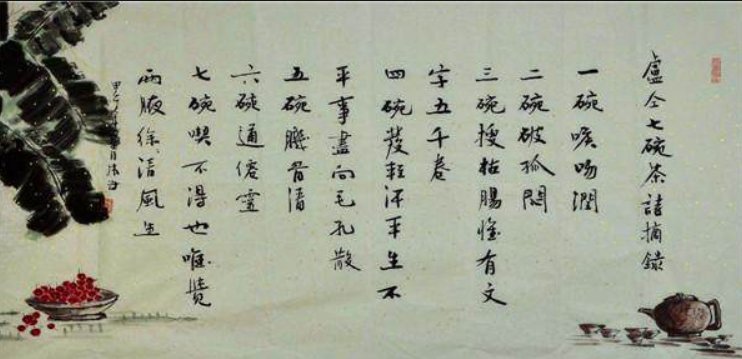 盧仝七碗茶詩摘錄
一碗喉吻潤
二碗破孤悶
三碗搜枯腸惟有文
字五千卷
四碗發輕汗平生不
平事盡向毛孔散
五碗肌骨清
六碗通僊靈
七碗喫不得也唯覺
兩腋徐清風生
甲午